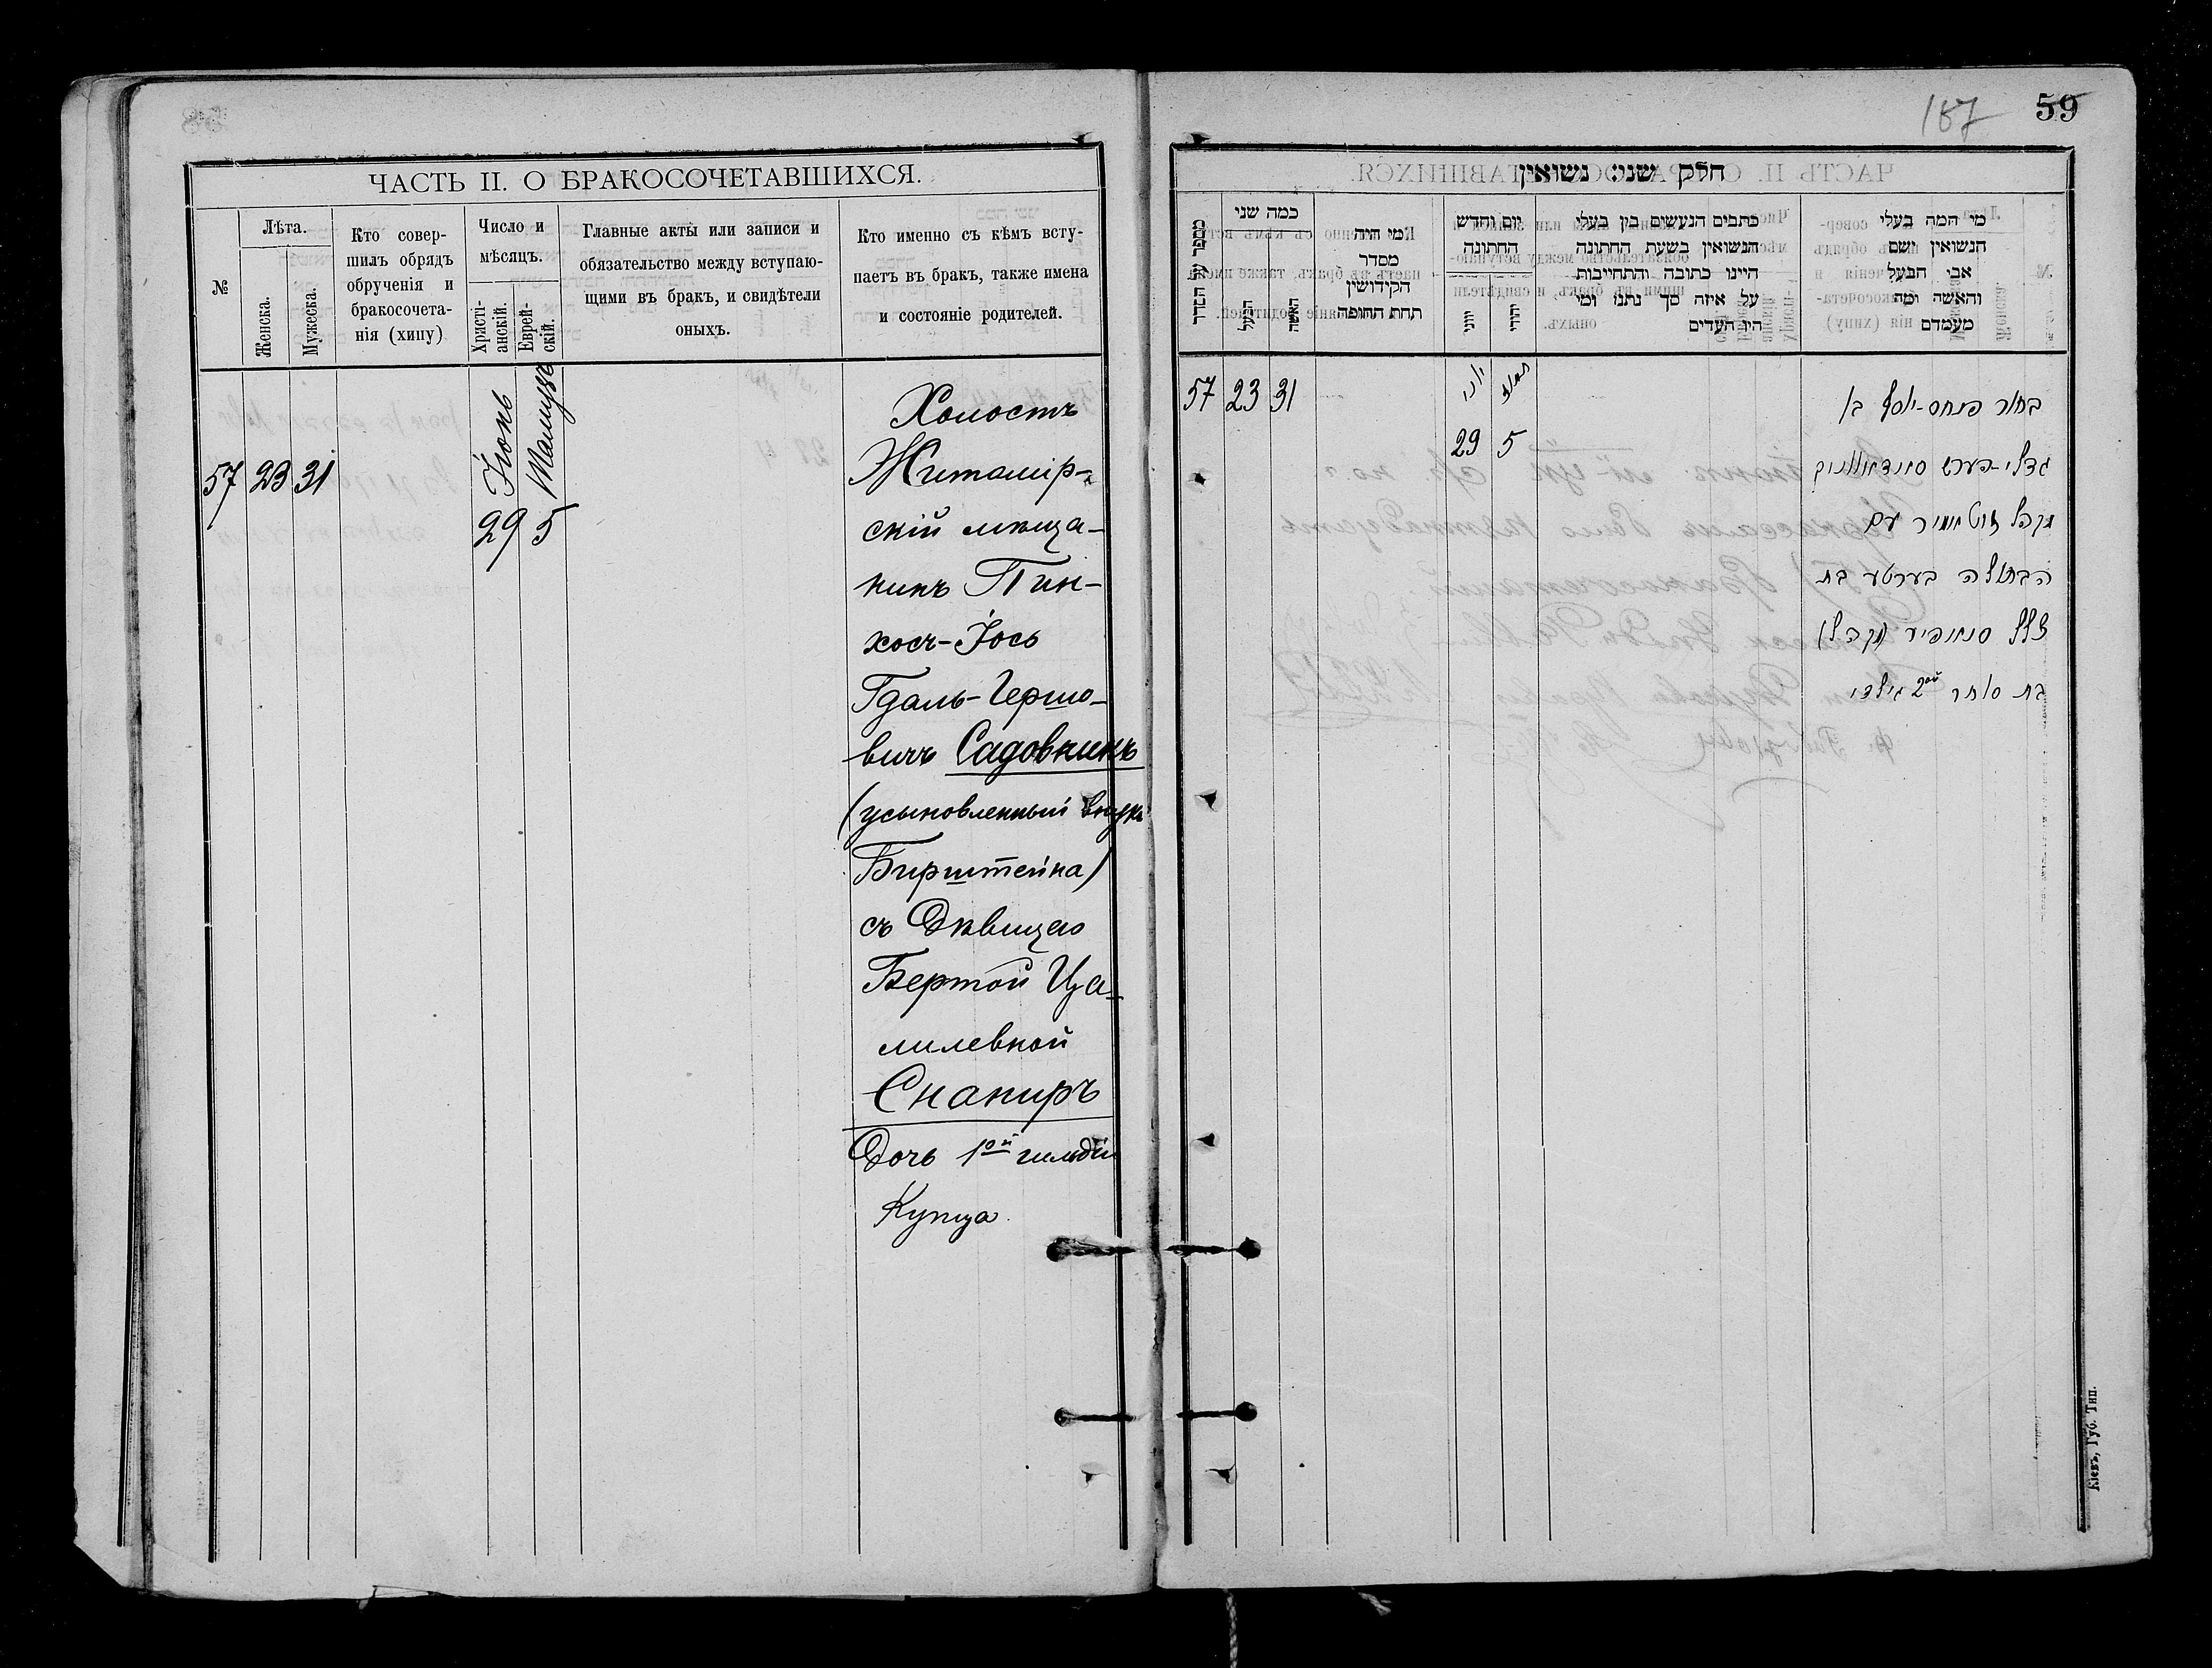 ЧАСТЬ II. О БРАКОСОЧЕТАВШИХСЯ.
№
Лѣта.
Женска.
Мужеска.
Кто совер-
шилъ обрядъ
обрученія и
бракосочета-
нія (хипу)
Число и
мѣсяцъ.
Христі-
анскій.
Еврей-
скій.
Главные акты или записи и
обязательство между вступаю-
щими въ бракъ, и свидѣтели
оныхъ.
Кто именно съ кѣмъ всту-
паетъ въ бракъ, также имена
и состояніе родителей.
57 23 31
Іюнь
29
Тамуза
5
Холостъ
Житомір-
скій мѣща-
нинъ Пин-
хосъ-Іось
Гдаль-Гершо-
вичъ Садовникъ
(усыновленный внукъ
Бирштейна)
съ Дѣвицею
Бертой Ца-
лилевной
Снапиръ
Дочь 1ой гильдіи
Купца
187
59
חלק שני: נשואין
מספר על הסדר
כמה שני
הבעל
האשה
מי היה
מסדר
הקידושין
תחת החופה
יום וחדש
החתונה
יוני
יהודי
כתבים הנעשים בין בעלי
הנשואין בשעת החתונה
היינו כתובה והתחייבות
על איזה סך נתנו ומי
היו העדים
מי המה בעלי
הנשואין ושם
אבי הבעל
והאשה ומה
מעמדם
57 23 31
יוני
29
תמוז
5
בחור פנחס-יוסף בן
גדלי-הערש
מקהל זיטאמיר עם
הבתולה בערטע בת
סנאפיר
בת סוחר 2ой גילדי
Кіевъ, Губ. Тип.